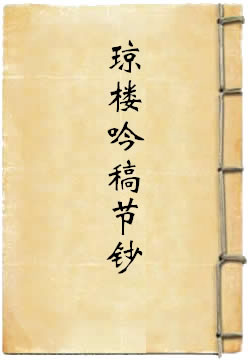 琼楼吟稿节钞